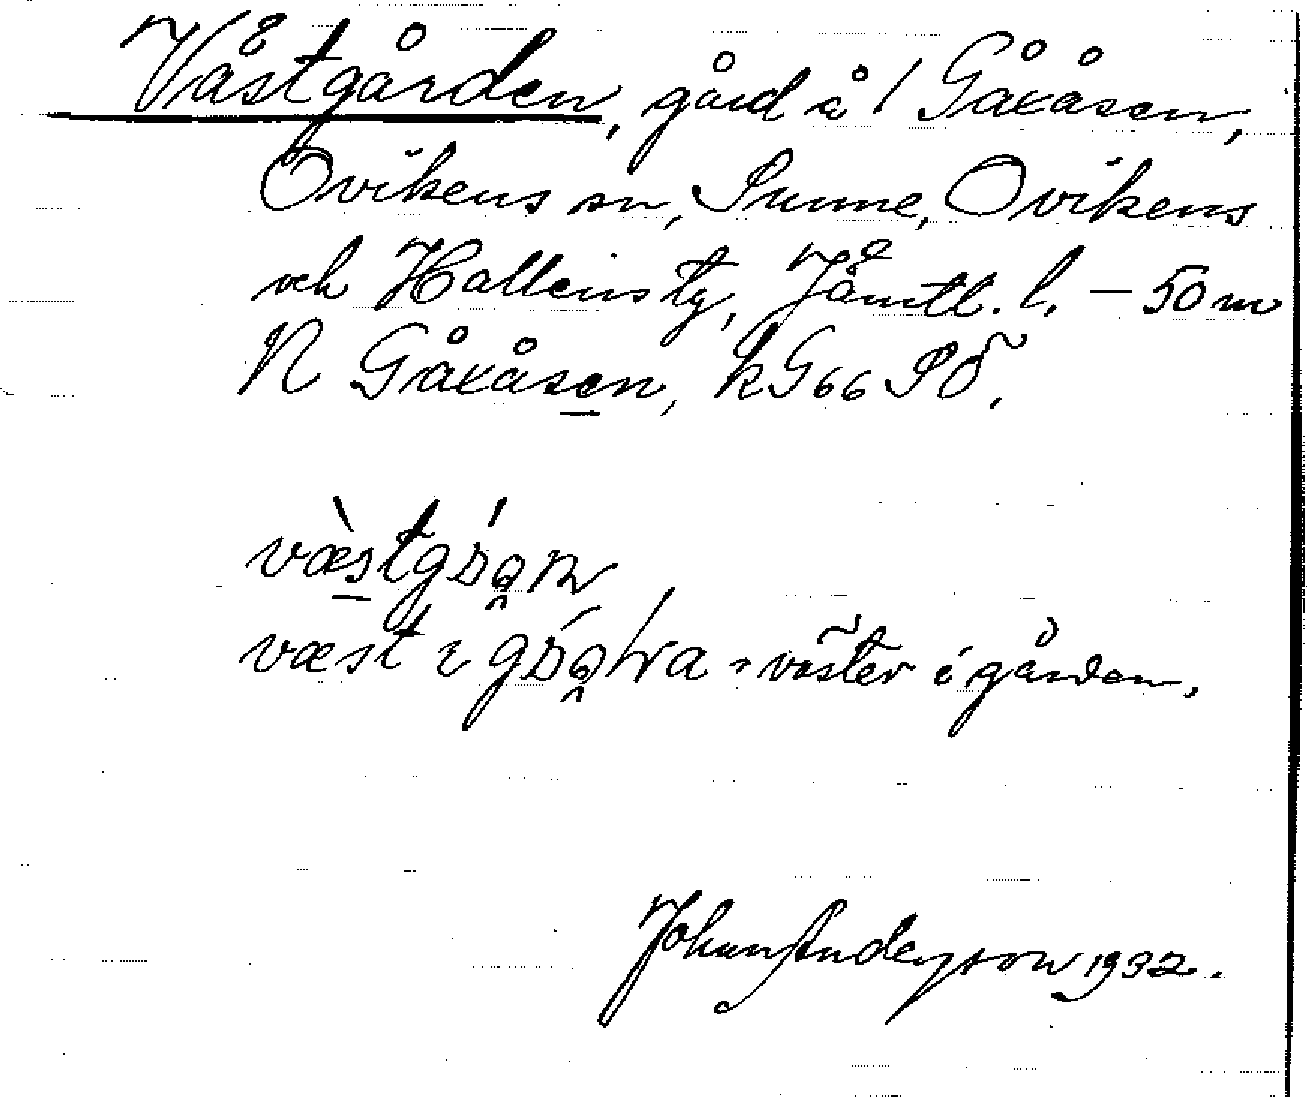 Västgården, gård å 1 Gåxåsen,
Ovikens sn, Sunne, Ovikens
och Hallens tg, Jämtl. l. – 50 m
N Gåxåsen, kG66 SÖ.
væst i
= väster i gården.
Johan Anderson 1932.